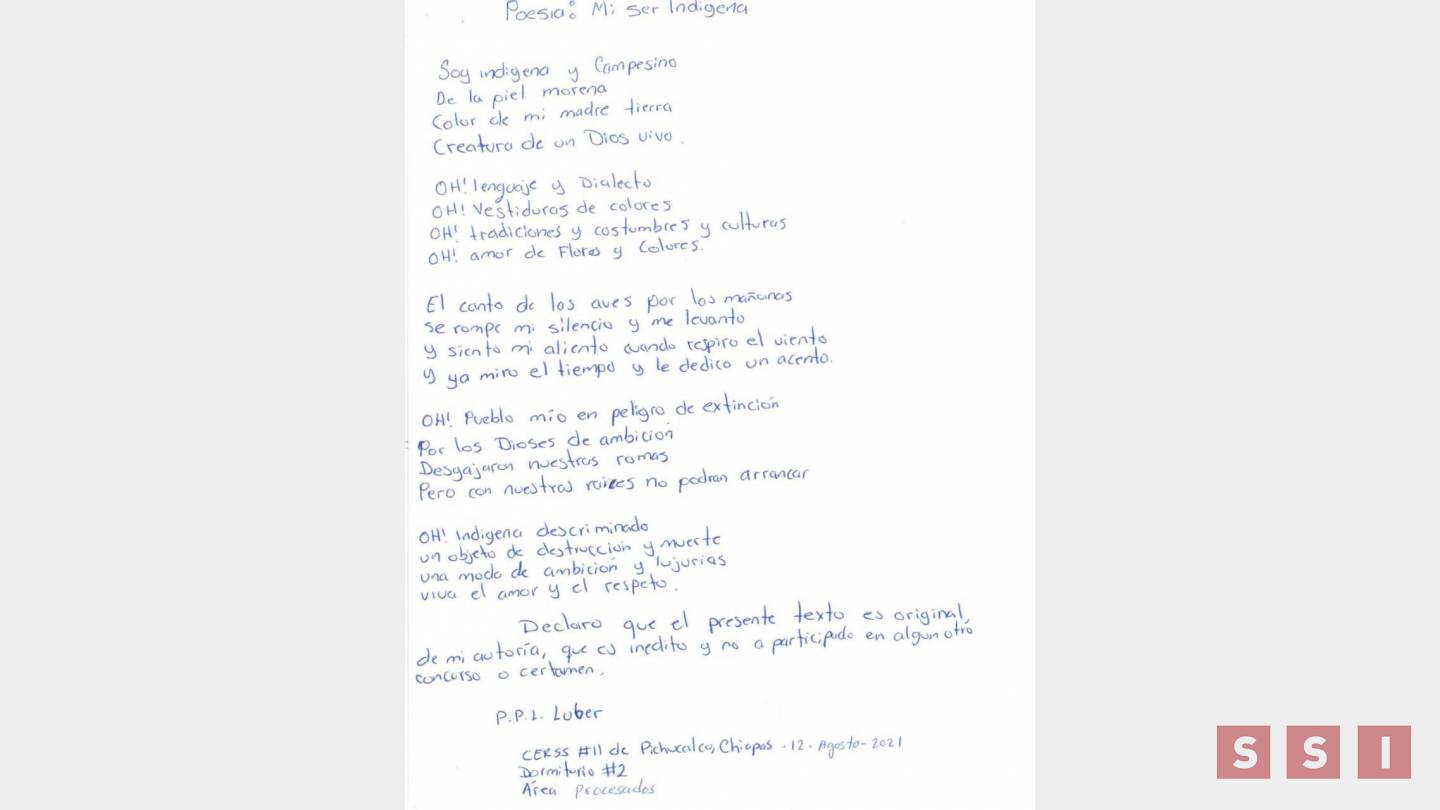 Poesia: Mi ser Indigena
Soy indigena y Campesino
De la piel morena
Color de mi madre tierra
Creatura de un Dios vivo.
OH! lenguaje y Dialecto
OH! Vestiduras de colores
OH! tradiciones y costumbres y culturas
OH! amor de Flores y Colores.
El canto de las aves por las mañanas
se rompe mi silencio y me levanto
y siento mi aliento cuando respiro el viento
y ya miro el tiempo y le dedico un acento.
OH! Pueblo mío en peligro de extinción
Por los Dioses de ambición
Desgajaron nuestras ramas
Pero con nuestras raices no podran arrancar
OH! Indigena descriminado
un objeto de destrucción y muerte
una moda de ambición y lujurias
viva el amor y el respeto.
Declaro que el presente texto es original,
de mi autoría, que es inedito y no a participado en algun otró
concurso o certamen.
P.P.L. Luber
CERSS #11 de Pichucalco, Chiapas - 12 - Agosto - 2021
Dormitorio #2
Área Procesados
SSI